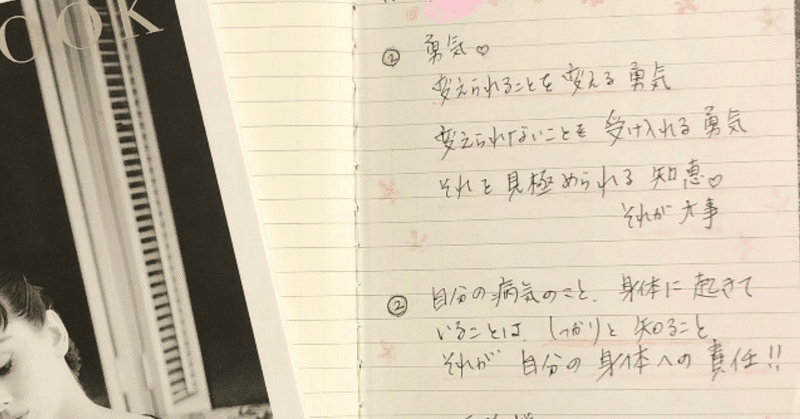 OOK
② 勇気♡
変えられることを変える勇気
変えられないことを受け入れる勇気
それを見極められる知恵♡
それが大事
② 自分の病気のこと、身体に起きて
いることは、しっかりと知ること、
それが自分の身体への責任!!